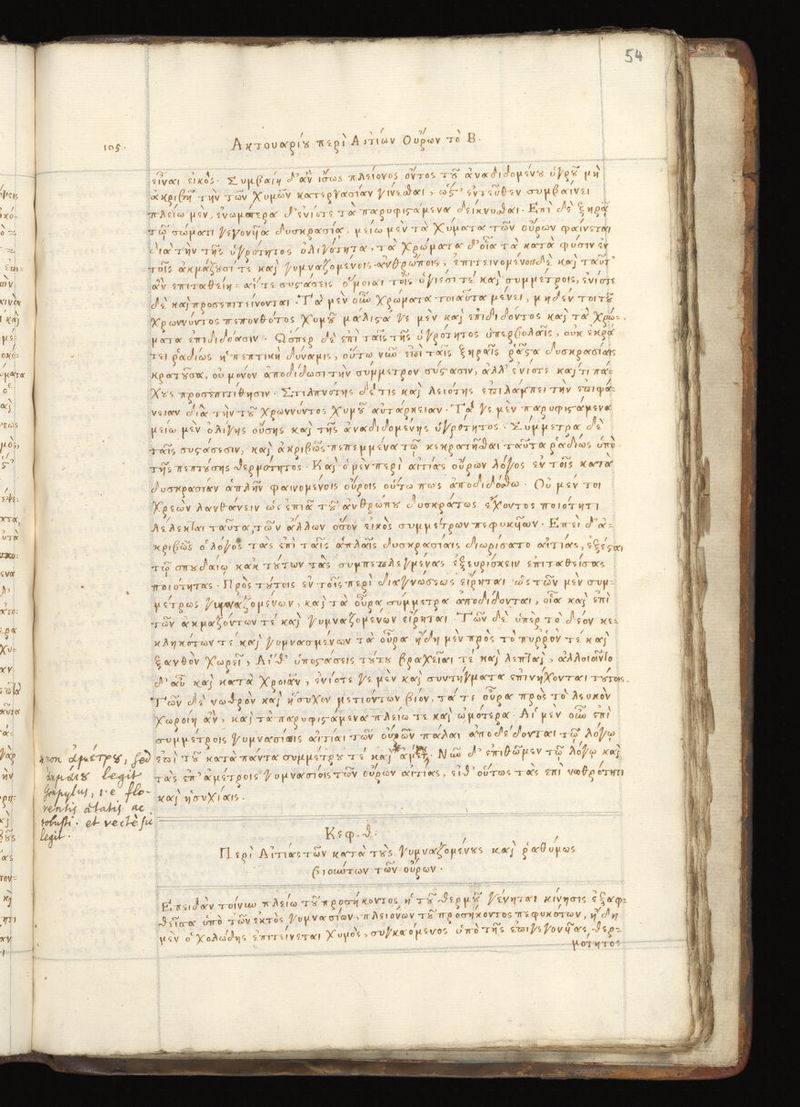 54
105.
Ακτουαρίου περὶ Αἰτιῶν Οὔρων τὸ Β.
εἶναι εἰκός· Συμβαίη δ' ἂν ἴσως πλείονος ὄντος τοῦ ἀναδιδομένου ὑγροῦ μὴ
ἀκριβῆ τὴν τῶν χυμῶν κατεργασίαν γίνεσθαι, ὥστ' ἐντεῦθεν συμβαίνει
πλείω μὲν, ἐνωμότερα δ' ἐνίοτε τὰ παρυφιστάμενα δείκνυσθαι· Ἐπὶ δὲ ξηρᾷ
τῷ σώματι γεγονυῖᾳ δυσκρασίᾳ, μείω μὲν τὰ χύματα τῶν οὔρων φαίνεται
διὰ τὴν τῆς ὑγρότητος ὀλιγότητα, τὰ χρώματα δ' οἷα τὰ κατὰ φύσιν ἐν
τοῖς ἀκμάζουσί τε καὶ γυμναζομένοις ἀνθρώποις, ἐπιτεινομένοις δὲ καὶ ταῦτ'
ἂν ἐπιταθείη· αἵ τε συστάσεις ὅμοιαι τοῖς ὑγιέσι τε καὶ συμμέτροις, ἐνίοτε
δὲ καὶ προσεπιτείνονται· Τὰ μὲν οὖν χρώματα τοιαῦτα μένει, μηδέν τοι τοῦ
χρωννύντος πεπονθότος χυμοῦ μάλιστά γε μὲν καὶ ἐπιδιδόντος καὶ τὰ χρώ=
ματα ἐπιδιδόασιν· Ὥσπερ δὲ ἐπὶ ταῖς τῆς ὑγρότητος ὑπερβολαῖς, οὐκ ἐκρά
τει ῥαδίως ἡ πεπτικὴ δύναμις, οὕτω νῦν ἐπὶ ταῖς ξηραῖς ῥᾷστα δυσκρασίαις
κρατοῦσα, οὐ μόνον ἀποδίδωσι τὴν σύμμετρον σύστασιν, ἀλλ' ἐνίοτε καί τι πά=
χους προσεπιτίθησιν· Στιλπνότης δέ τις καὶ λειότης ἐπιλάμπει τὴν ἐπιφά=
νειαν διὰ τὴν τοῦ χρωννύντος χυμοῦ αὐτάρκειαν· Τά γε μὲν παρυφιστάμενα
μείω μὲν ὀλίγης οὔσης καὶ τῆς ἀναδιδομένης ὑγρότητος· Σύμμετρα δὲ
ταῖς συστάσεσιν, καὶ ἀκριβῶς πεπεμμένα τῷ κεκρατῆσθαι ταῦτα ῥαδίως ὑπὸ
τῆς πεπτούσης θερμότητος· Καὶ ὁ μὲν περὶ αἰτίας οὔρων λόγος ἐν τοῖς κατὰ
δυσκρασίαν ἁπλῆν φαινομένοις οὔροις οὕτω πως ἀποδιδόσθω· Οὐ μέν τοι
χρεὼν λανθάνειν ὡς ἐπὶ τοῦ ἀνθρώπου δυσκράτως ἔχοντος ποιότητι
λέλεκται ταῦτα, τῶν ἄλλων ὅσον εἰκὸς συμμέτρων πεφυκυιῶν· Ἐπεὶ δ' ἀ=
κριβῶς ὁ λόγος τὰς ἐπὶ ταῖς ἁπλαῖς δυσκρασίαις διωρίσατο αἰτίας, ἐξέσται
τῷ σπουδαίῳ κἀκ τούτων τὰς συμπεπλεγμένας ἐξευρίσκειν ἐπιταθείσας
ποιότητας· Πρὸς τούτοις ἐν τοῖς περὶ διαγνώσεως εἴρηται ὡς τῶν μὲν συμ=
μέτρως γυμναζομένων, καὶ τὰ οὖρα σύμμετρα ἀποδίδονται, οἷα καὶ ἐπὶ
τῶν ἀκμαζόντων τε καὶ γυμναζομένων εἴρηται· Τῶν δὲ ὑπὲρ τὸ δέον κε=
κληκότων τε καὶ γυμνασμένων τὰ οὖρα ἤδη μὲν πρὸς τὸ πυρρόν τε καὶ
ξανθὸν χωρεῖ, Αἱ δ' ὑποστάσεις τούτου βραχεῖαί τε καὶ λεπταὶ, ἀλλοιοῦντο
δ' αὖ καὶ κατὰ χροιάν, ἐνίοτέ γε μὲν καὶ συντήγματα ἐπινήχονται τούτοις.
Τῶν δὲ νωθρὸν καὶ ἥσυχον μετιόντων βίον, τά τε οὖρα πρὸς τὸ λευκὸν
χωροίη ἂν, καὶ τὰ παρυφιστάμενα πλείω τε καὶ ὠμότερα· Αἱ μὲν οὖν ἐπὶ
συμμέτροις γυμνασίοις αἰτίαι τῶν οὔρων πάλαι ἀποδέδονται τῷ λόγῳ
ἐπὶ τοῦ κατὰ πάντα συμμέτρου τε καὶ Νῦν δ' ἐπιθῶμεν τῷ λόγῳ καὶ
τὰς ἐπ' ἀμέτροις γυμνασίοις τῶν οὔρων αἰτίας, εἶθ' οὕτως τὰς ἐπὶ νωθρότητι
καὶ ἡσυχίαις.
non ἀμέτρου, sed
legit
, i.e. flo-
rentis ætatis ac
robusti· et recte sic
legit.
Κεφ. θ.
Περὶ Αἰτίας τῶν κατὰ τοὺς γυμναζομένους καὶ ῥαθύμως
βιούντων τῶν οὔρων.
Ἐπειδὰν τοίνυν πλείω τοῦ προσήκοντος ἡ τοῦ θερμοῦ γένηται κίνησις ἐξαφ=
θεῖσα ὑπὸ τῶν ἐκτὸς γυμνασίων, πλειόνων τοῦ προσήκοντος πεφυκότων, ἤδη
μὲν ὁ χολώδης ἐπιτείνεται χυμὸς, συγκαόμενος ὑπὸ τῆς ἐπιγεγονυίας θερ=
μότητος